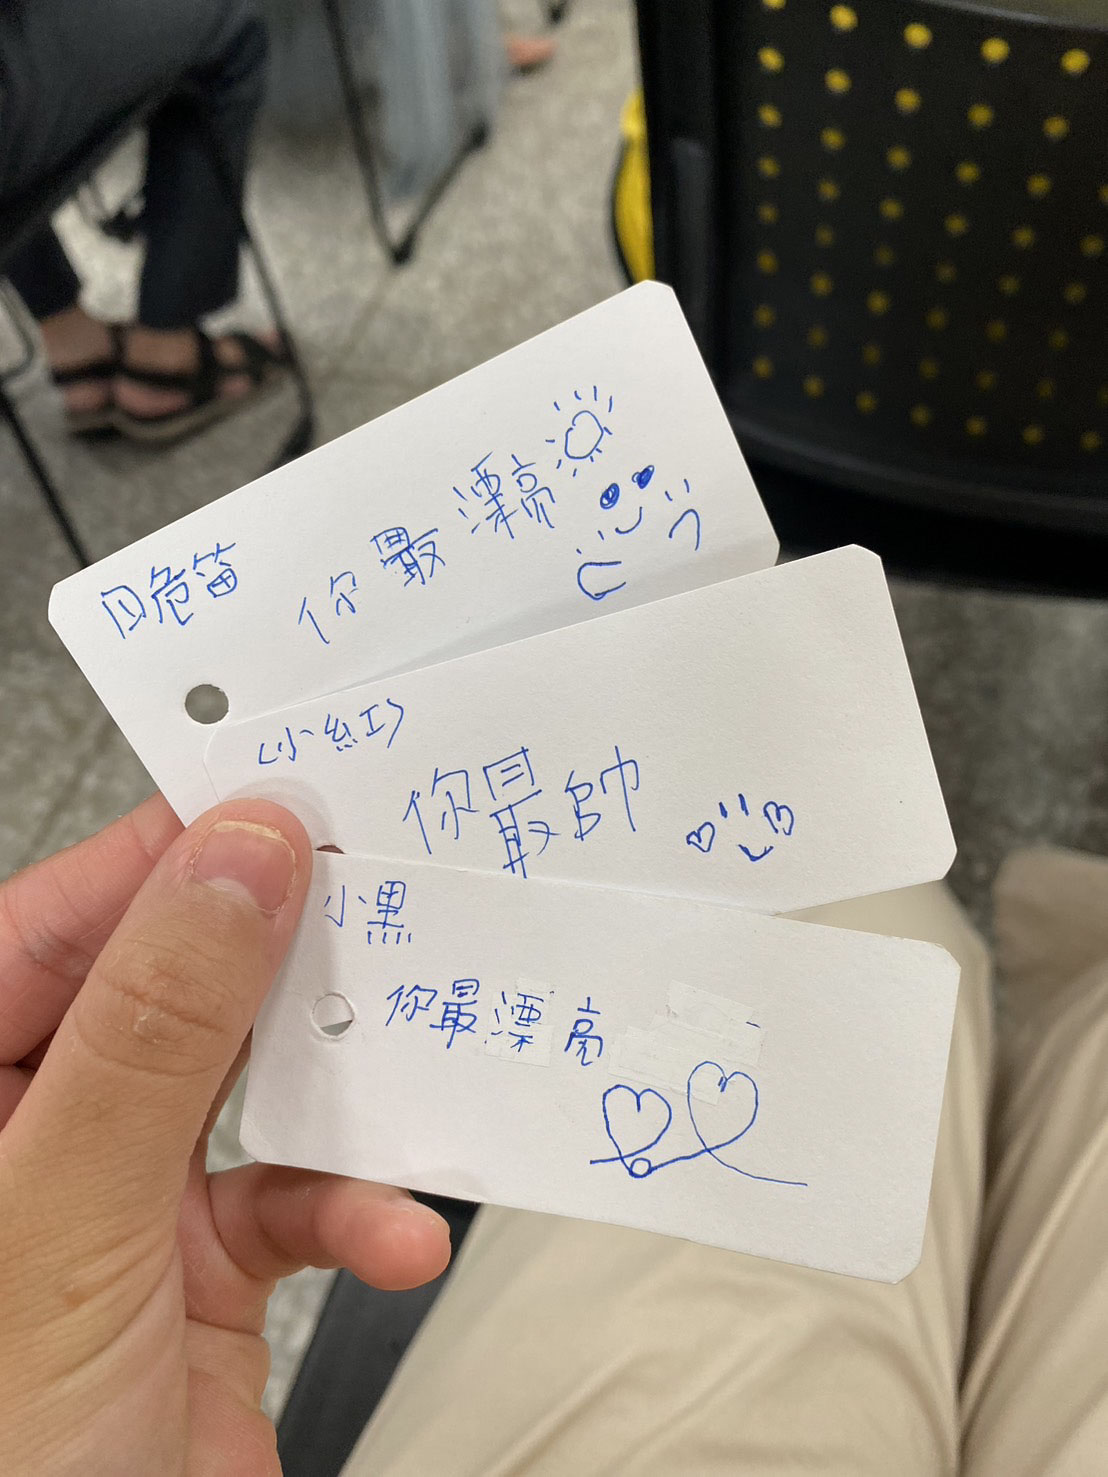 日危笛
你最漂亮
<小紅>
你最帥
小黑
你最漂亮